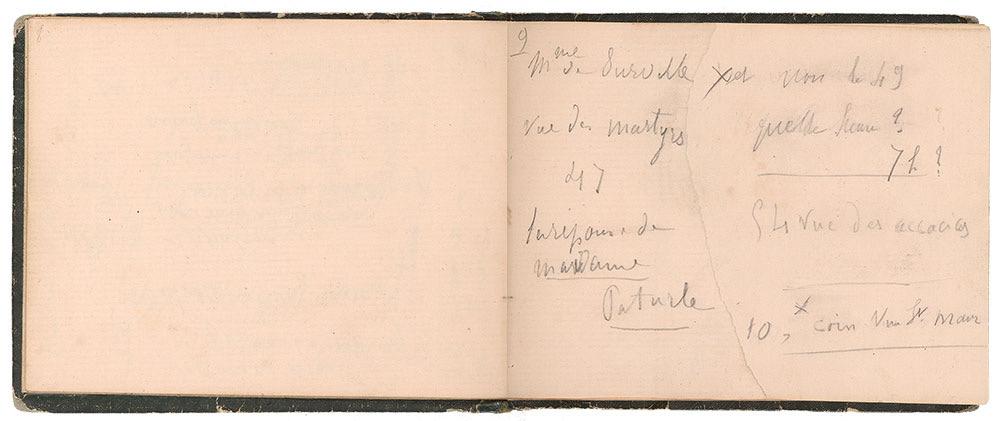 9
Mme de Surville
rue des martyrs
47
de
madame
Paturle
x et non le 49
quelle heure ?
7 h ?
54 rue des accacias
10, x coin rue St. Maur